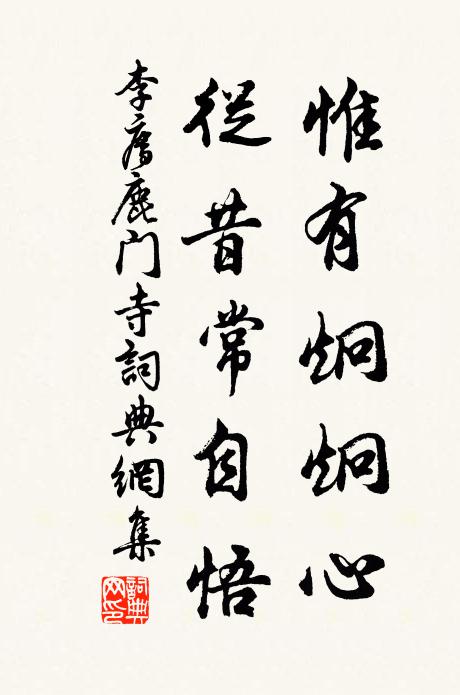 惟有炯炯心
從昔常自悟
李廌鹿門寺詞典網集
詞典网印